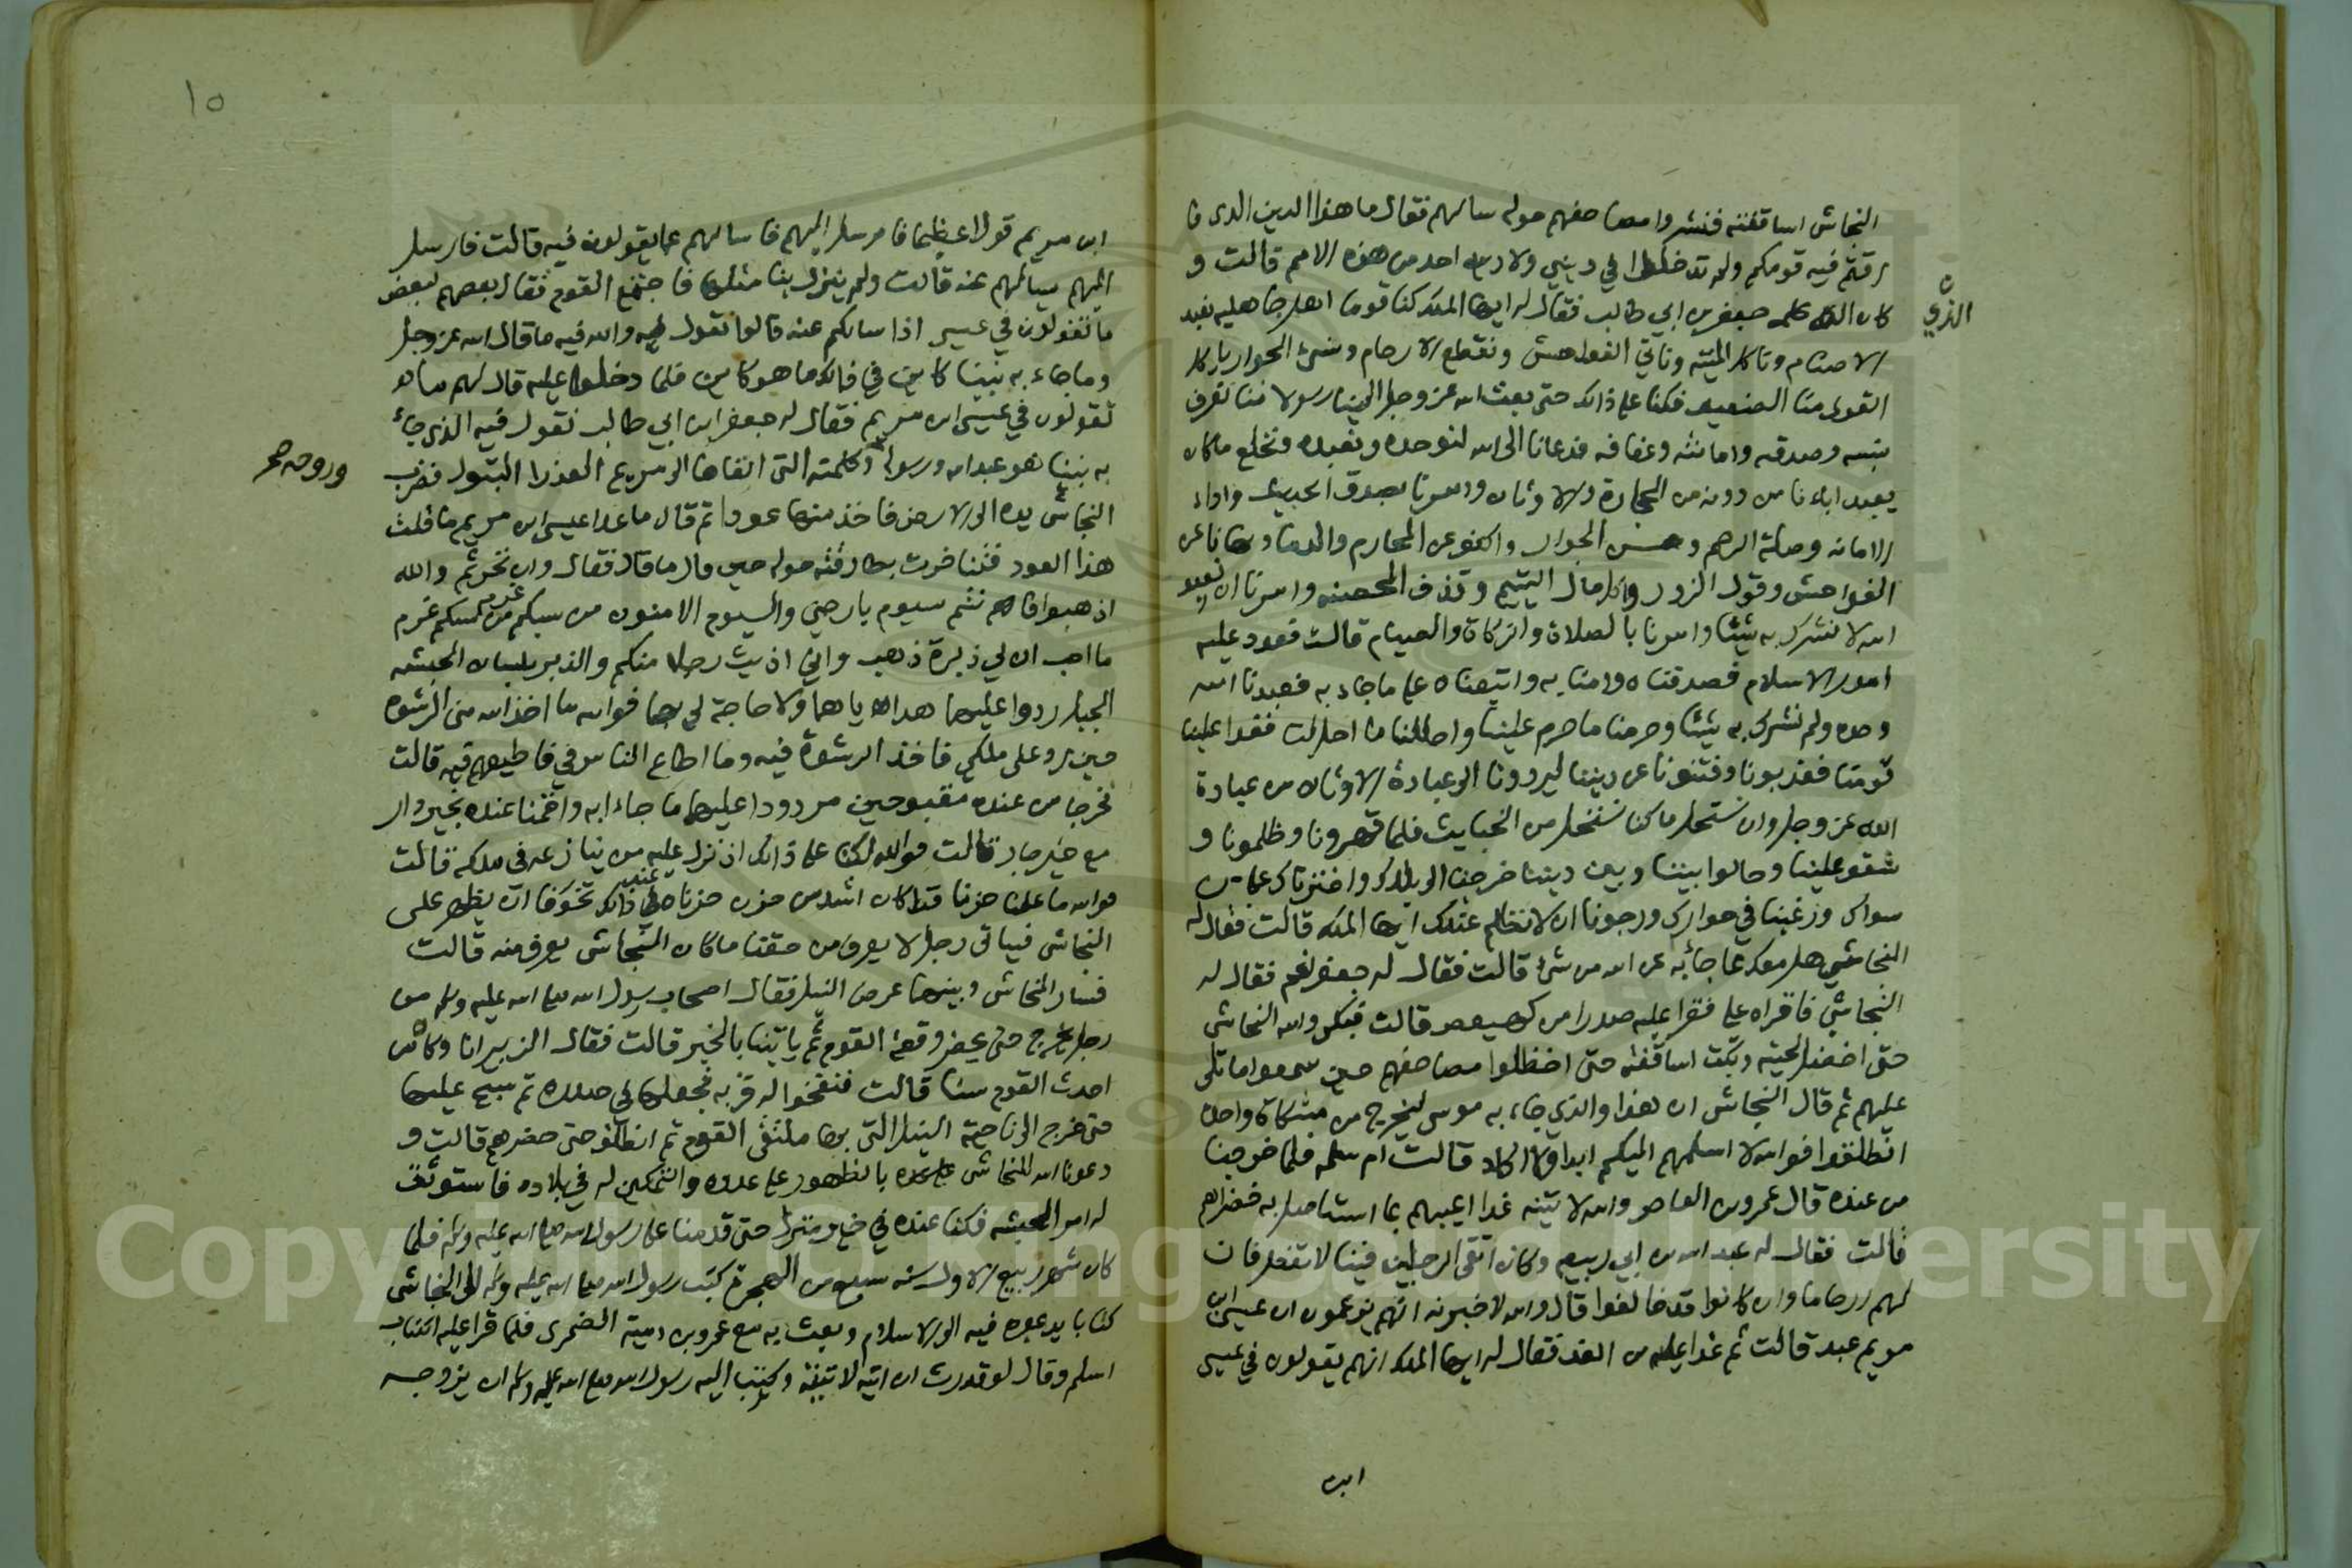 النجاشي اساقفته فنشروا مصاحفهم حوله سالهم فقال ما هذا الدين الذي فا
رقتم فيه قومكم ولم تدخلوا في ديني ولا دين احد من هذه الامم قالت و
كان الذي كلمه جعفر بن ابي طالب فقال له ايها الملك كنا قوما اهل جاهليه نعبد
الذي
الاصنام وناكل الميته وناتي الفواحش ونقطع الارحام ونسئ الجوار ياكل
القوى منا الضعيف فكنا على ذالك حتى بعث الله عز وجل الينا رسولا منا نعرف
نسبه وصدقه وامانته وعفافه فدعانا الى الله لنوحده ونعبده ونخلع ما كان
يعبد اباءنا من دونه من الحجارة والاوثان وامرنا بصدق الحديث واداء
الامانه وصلة الرحم وحسن الجوار والكف عن المحارم والدماء ونهانا عن
الفواحش وقول الزور واكل مال اليتيم وقذف المحصنه وامرنا ان نعبد
الله لا نشرك به شيئا وامرنا بالصلاة والزكاة والصيام قالت فعدد عليه
امور الاسلام فصدقناه وامنا به واتبعناه على ما جاء به فعبدنا الله
وحده ولم نشرك به شيئا وحرمنا ما حرم علينا واحللنا ما احل لنا فغدا علينا
قومنا فعذبونا وفتنونا عن ديننا ليردونا الى عبادة الاوثان من عبادة
الله عز وجل وان نستحل ما كنا نستحل من الخبايث فلما قهرونا وظلمونا و
شقو علينا وحالوا بيننا وبين ديننا خرجنا الى بلادك واخترناك على من
سواك ورغبنا في جوارك ورجونا ان لا نظلم عندك ايها الملك قالت فقال له
النجاشي هل معك مما جاء به عن الله من شئ قالت فقال له جعفر نعم فقال له
النجاشي فاقراه علي فقرا عليه صدرا من كهيعص قالت فبكى والله النجاشي
حتى اخضل لحيته وبكت اساقفته حتى اخضلوا مصاحفهم حين سمعوا ما تلى
عليهم ثم قال النجاشي ان هذا والذي جاء به موسى ليخرج من مشكاة واحدة
انطلقوا فوالله لا اسلمهم اليكم ابدا ولا اكاد قالت ام سلمه فلما خرجنا
من عنده قال عمرو بن العاص والله لاتينه غدا اعيبهم بما استاصل به خضراهم
قالت فقال له عبد الله بن ابي ربيعه وكان اتقى الرجلين فينا لا تفعل فان
لهم ارحاما وان كانوا قد خالفوا قال والله لاخبرنه انهم يزعمون ان عيسى ابن
مريم عبد قالت ثم غدا عليه من الغد فقال له ايها الملك انهم يقولون في عيسى
ابن
١٥
ابن مريم قولا عظيما فارسل اليهم فاسالهم عما يقولون فيه قالت فارسل
اليهم يسالهم عنه قالت ولم ينزل بنا مثلها فاجتمع القوم فقال بعضهم لبعض
ما تقولون في عيسى اذا سالكم عنه قالوا نقول والله فيه ما قال الله عز وجل
وما جاء به نبينا كاين في ذالك ما هو كاين فلما دخلوا عليه قال لهم ما
تقولون في عيسى ابن مريم فقال له جعفر ابن ابي طالب نقول فيه الذي جاء
به نبينا هو عبد الله ورسوله وكلمته التي القاها الى مريم العذرا البتول فضرب
وروحه صح
النجاشي يده الى الارض فاخذ منها عودا ثم قال ما عدا عيسى ابن مريم ما قلت
هذا العود فتناخرت بطارقته حوله حين قال ما قال فقال وان نخرتم والله
اذهبوا فانتم سيوم بارضي والسيوم الامنون من سبكم غرم من سبكم غرم
ما احب ان لي دبرة ذهب واني اذيت رجلا منكم والدبر بلسان الحبشه
الجبل ردوا عليهما هداياهما ولا حاجة لي بها فوالله ما اخذ الله مني الرشوه
حين رد علي ملكي فاخذ الرشوة فيه وما اطاع الناس في فاطيعهم فيه قالت
فخرجا من عنده مقبوحين مردودا عليهما ما جاءا به واقمنا عنده بخير دار
مع خير جار قالت فوالله انا على ذالك اذ نزل به من ينازعه في ملكه قالت
فوالله ما علمنا حزنا قط كان اشد من حزن حزناه عند ذالك تخوفا ان يظهر على
النجاشي فياتي رجل لا يعرف من حقنا ما كان النجاشي يعرف منه قالت
فسار النجاشي وبينهما عرض النيل فقال اصحاب رسول الله صلى الله عليه وسلم من
رجل يخرج حتى يحضر وقعة القوم ثم ياتينا بالخبر قالت فقال الزبير انا وكان من
احدث القوم سنا قالت فنفخوا له قربه فجعلها في صدره ثم سبح عليها
حتى خرج الى ناحية النيل التي بها ملتقى القوم ثم انطلق حتى حضرهم قالت و
دعونا الله للنجاشي بالظهور على عدوه والتمكين له في بلاده فاستوثق
له امر الحبشه فكنا عنده في خير منزل حتى قدمنا على رسول الله صلى الله عليه وسلم فلما
كان شهر ربيع الاول سنه سبع من الهجرة كتب رسول الله صلى الله عليه وسلم الى النجاشي
كتابا يدعوه فيه الى الاسلام وبعث به مع عمرو بن امية الضمري فلما قرا عليه الكتاب
اسلم وقال لو قدرت ان اتيه لاتيته وكتب اليه رسول الله صلى الله عليه وسلم ان يزوجه
Copyright © King Saud University